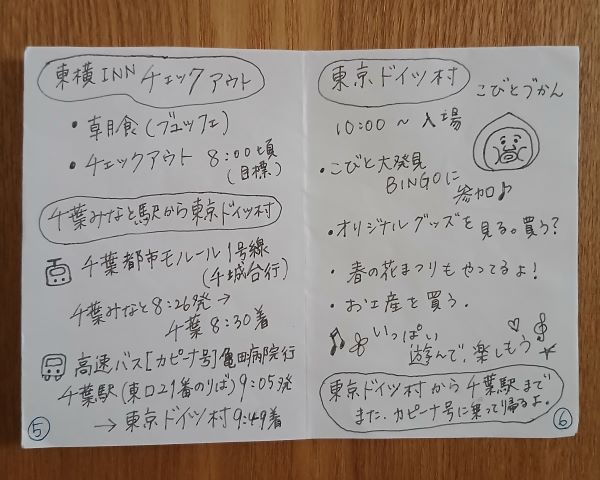 東横INN チェックアウト
・朝食(ブュッフェ)
・チェックアウト 8:00頃
(目標)
千葉みなと駅から東京ドイツ村
千葉都市モルール1号線
(千城台行)
千葉みなと8:26発→
千葉 8:30着
高速バス[カピーナ号]亀田病院行
千葉駅(東口21番のりば)9:05発
→東京ドイツ村9:49着
5
東京ドイツ村
こびとづかん
10:00~入場
・こびと大発見
BINGOに
参加♪
・オリジナルグッズを見る。買う?
・春の花まつりもやってるよ!
・お土産を買う.
いっぱい
遊んで、楽しもう
東京ドイツ村から千葉駅まで
また、カピーナ号に乗って帰るよ。
6